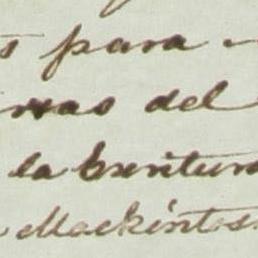 s para
mas del
la Escritura
Mackintos